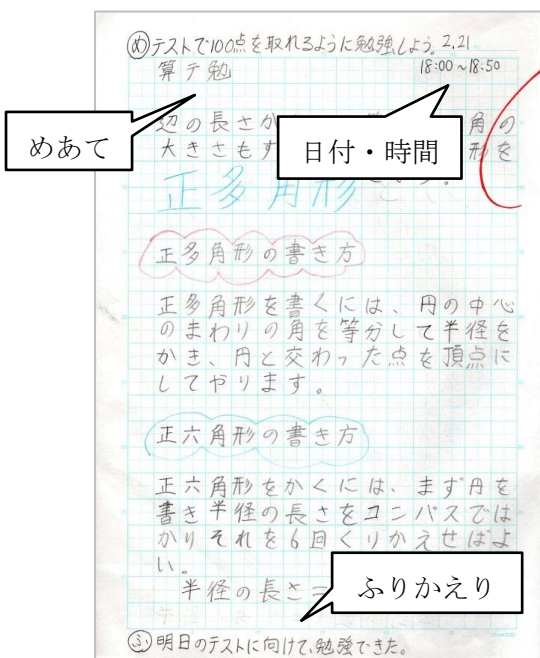 め テストで100点を取れるように勉強しよう。2.21
算テ勉 18:00~18:50
めあて
日付・時間
辺の長さが 角の
大きさもす 形を
正多角形 という。
正多角形の書き方
正多角形を書くには、円の中心
のまわりの角を等分して半径を
かき、円と交わった点を頂点に
してやります。
正六角形の書き方
正六角形をかくには、まず円を
書き半径の長さをコンパスでは
かりそれを6回くりかえせばよ
い。
半径の長さ=
ふりかえり
ふ 明日のテストに向けて、勉強できた。